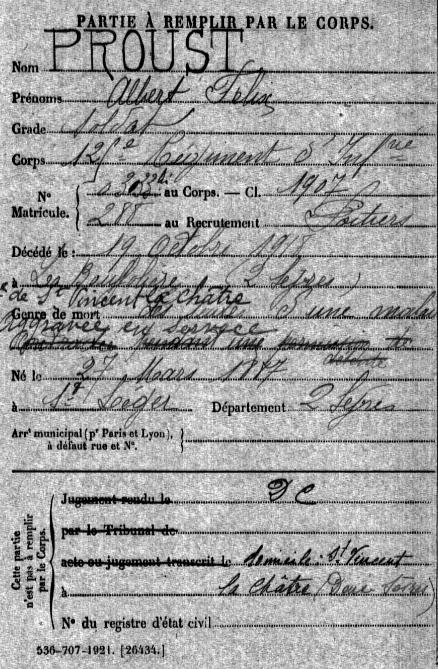 PARTIE À REMPLIR PAR LE CORPS.
Nom PROUST
Prénoms Albert Félix
Grade
Corps 125e Régiment d'Infrie
N° Matricule. au Corps. — Cl. 1907
288 au Recrutement Poitiers
Décédé le : 19 Octobre 1918
à 2 Sèvres
de St Vincent la Châtre
Genre de mort d'une maladie
Aggravée en service
Né le 27 Mars
à St Léger Département 2 Sèvres
Arrt municipal (pr Paris et Lyon), à défaut rue et N°.
Cette partie n'est pas à remplir par le Corps.
Jugement rendu le DC
par le Tribunal de
acte ou jugement transcrit le domicile : St Vincent
à la Châtre (Deux Sèvres)
N° du registre d'état civil
536-707-1921. [26434.]